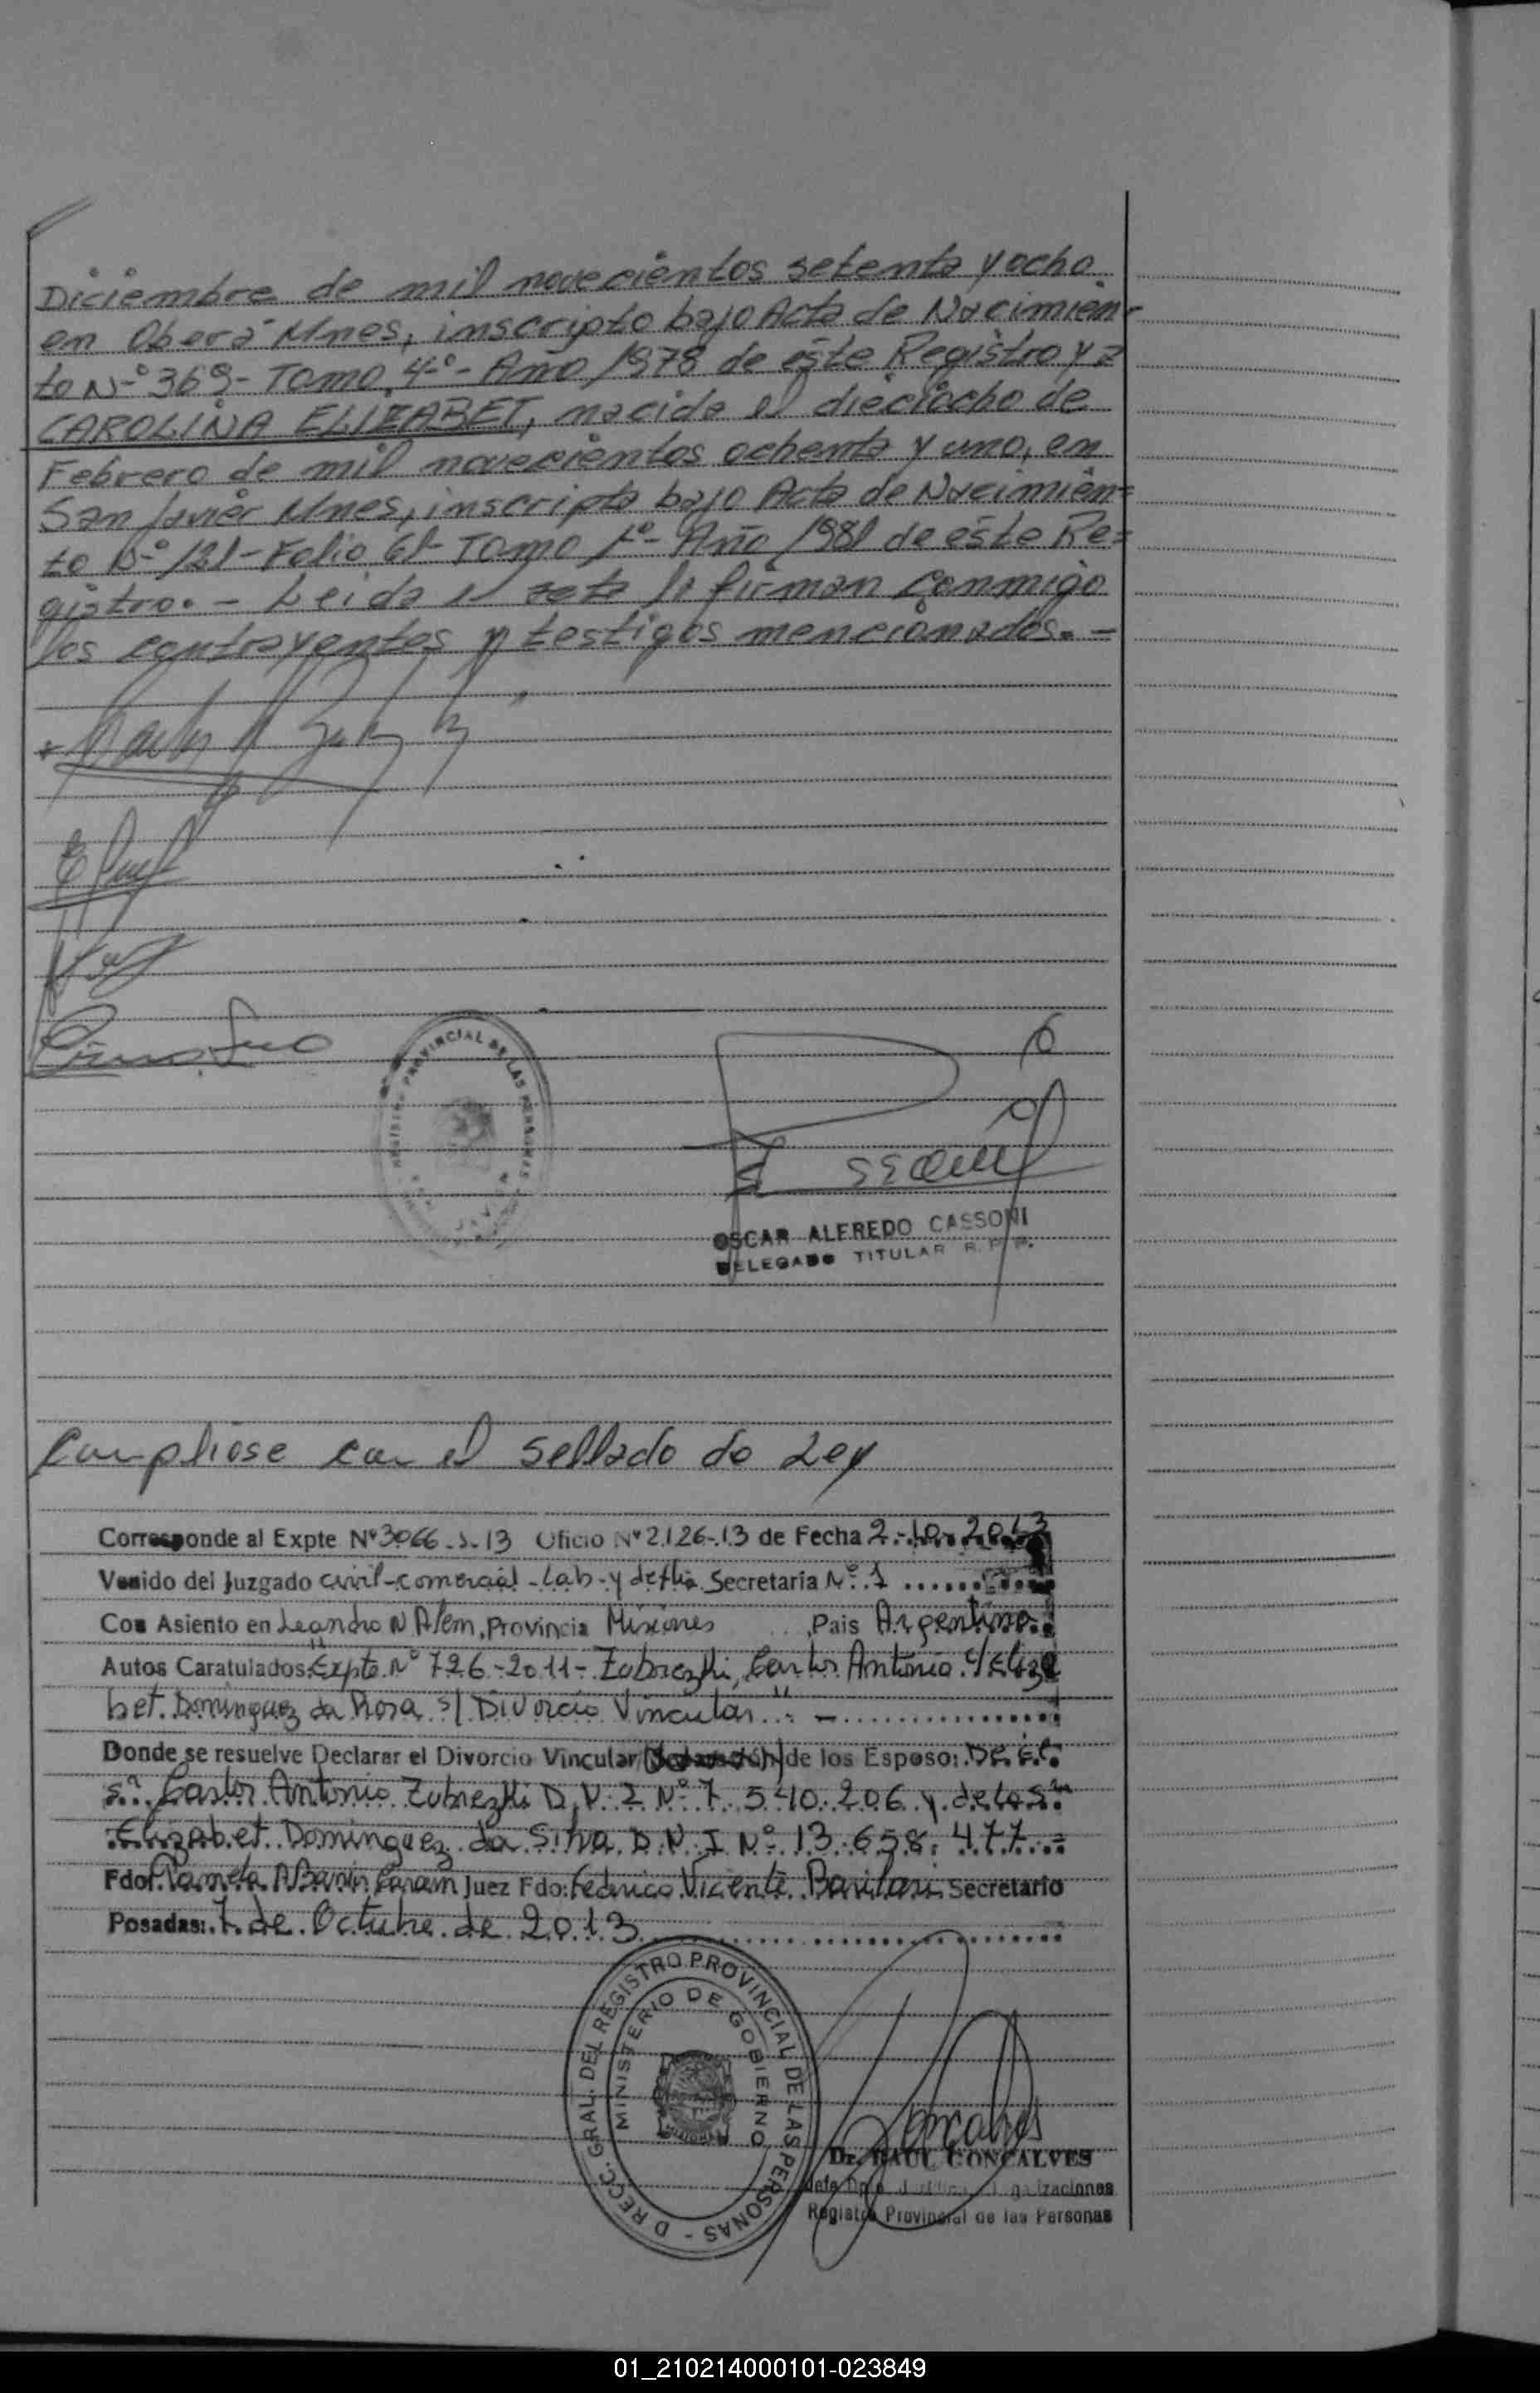 Diciembre de mil novecientos setenta y ocho
en Oberá Mnes, inscripto bajo Acta de Nacimien-
to Nº 369- Tomo 4º- Año 1978 de éste Registro y a
CAROLINA ELIZABET, nacida el dieciocho de
Febrero de mil novecientos ochenta y uno, en
San Javier Mnes, inscripta bajo Acta de Nacimien=
to Nº 121- Folio 61- Tomo 1º- Año 1981 de éste Re=
gistro.- Leida el acta la firman conmigo
los contrayentes y testigos mencionados.-
REGISTRO PROVINCIAL DE LAS PERSONAS
OSCAR ALFREDO CASSONI
DELEGADO TITULAR R. P. P.
Cumpliose con el Sellado de Ley
Corresponde al Expte Nº 3066-J-13 Oficio Nº 2126-13 de Fecha 2-10-2013
Venido del Juzgado civil-comercial-Lab-y deflia Secretaria Nº 1
Con Asiento en Leandro N Alem, Provincia Misiones Pais Argentina.
Autos Caratulados: "Expte Nº 726-2011- Zubrezki, Carlos Antonio c/ Eliza
bet Dominguez da Rosa s/ Divorcio Vincular".-
Donde se resuelve Declarar el Divorcio Vincular de los Esposo: De él
Sr. Carlos Antonio Zubrezki D.N.I Nº 7.540.206 y de la Sra
Elizabet Dominguez da Silva D.N.I Nº 13.658.477.=
Fdo: Pamela A Barrios Caram Juez Fdo: Federico Vicente Barilari Secretario
Posadas: 7 de Octubre de 2013
DIRECC. GRAL. DEL REGISTRO PROVINCIAL DE LAS PERSONAS -
MINISTERIO DE GOBIERNO
MISIONES
Dr. RAUL GONCALVES
Registro Provincial de las Personas
01_210214000101-023849